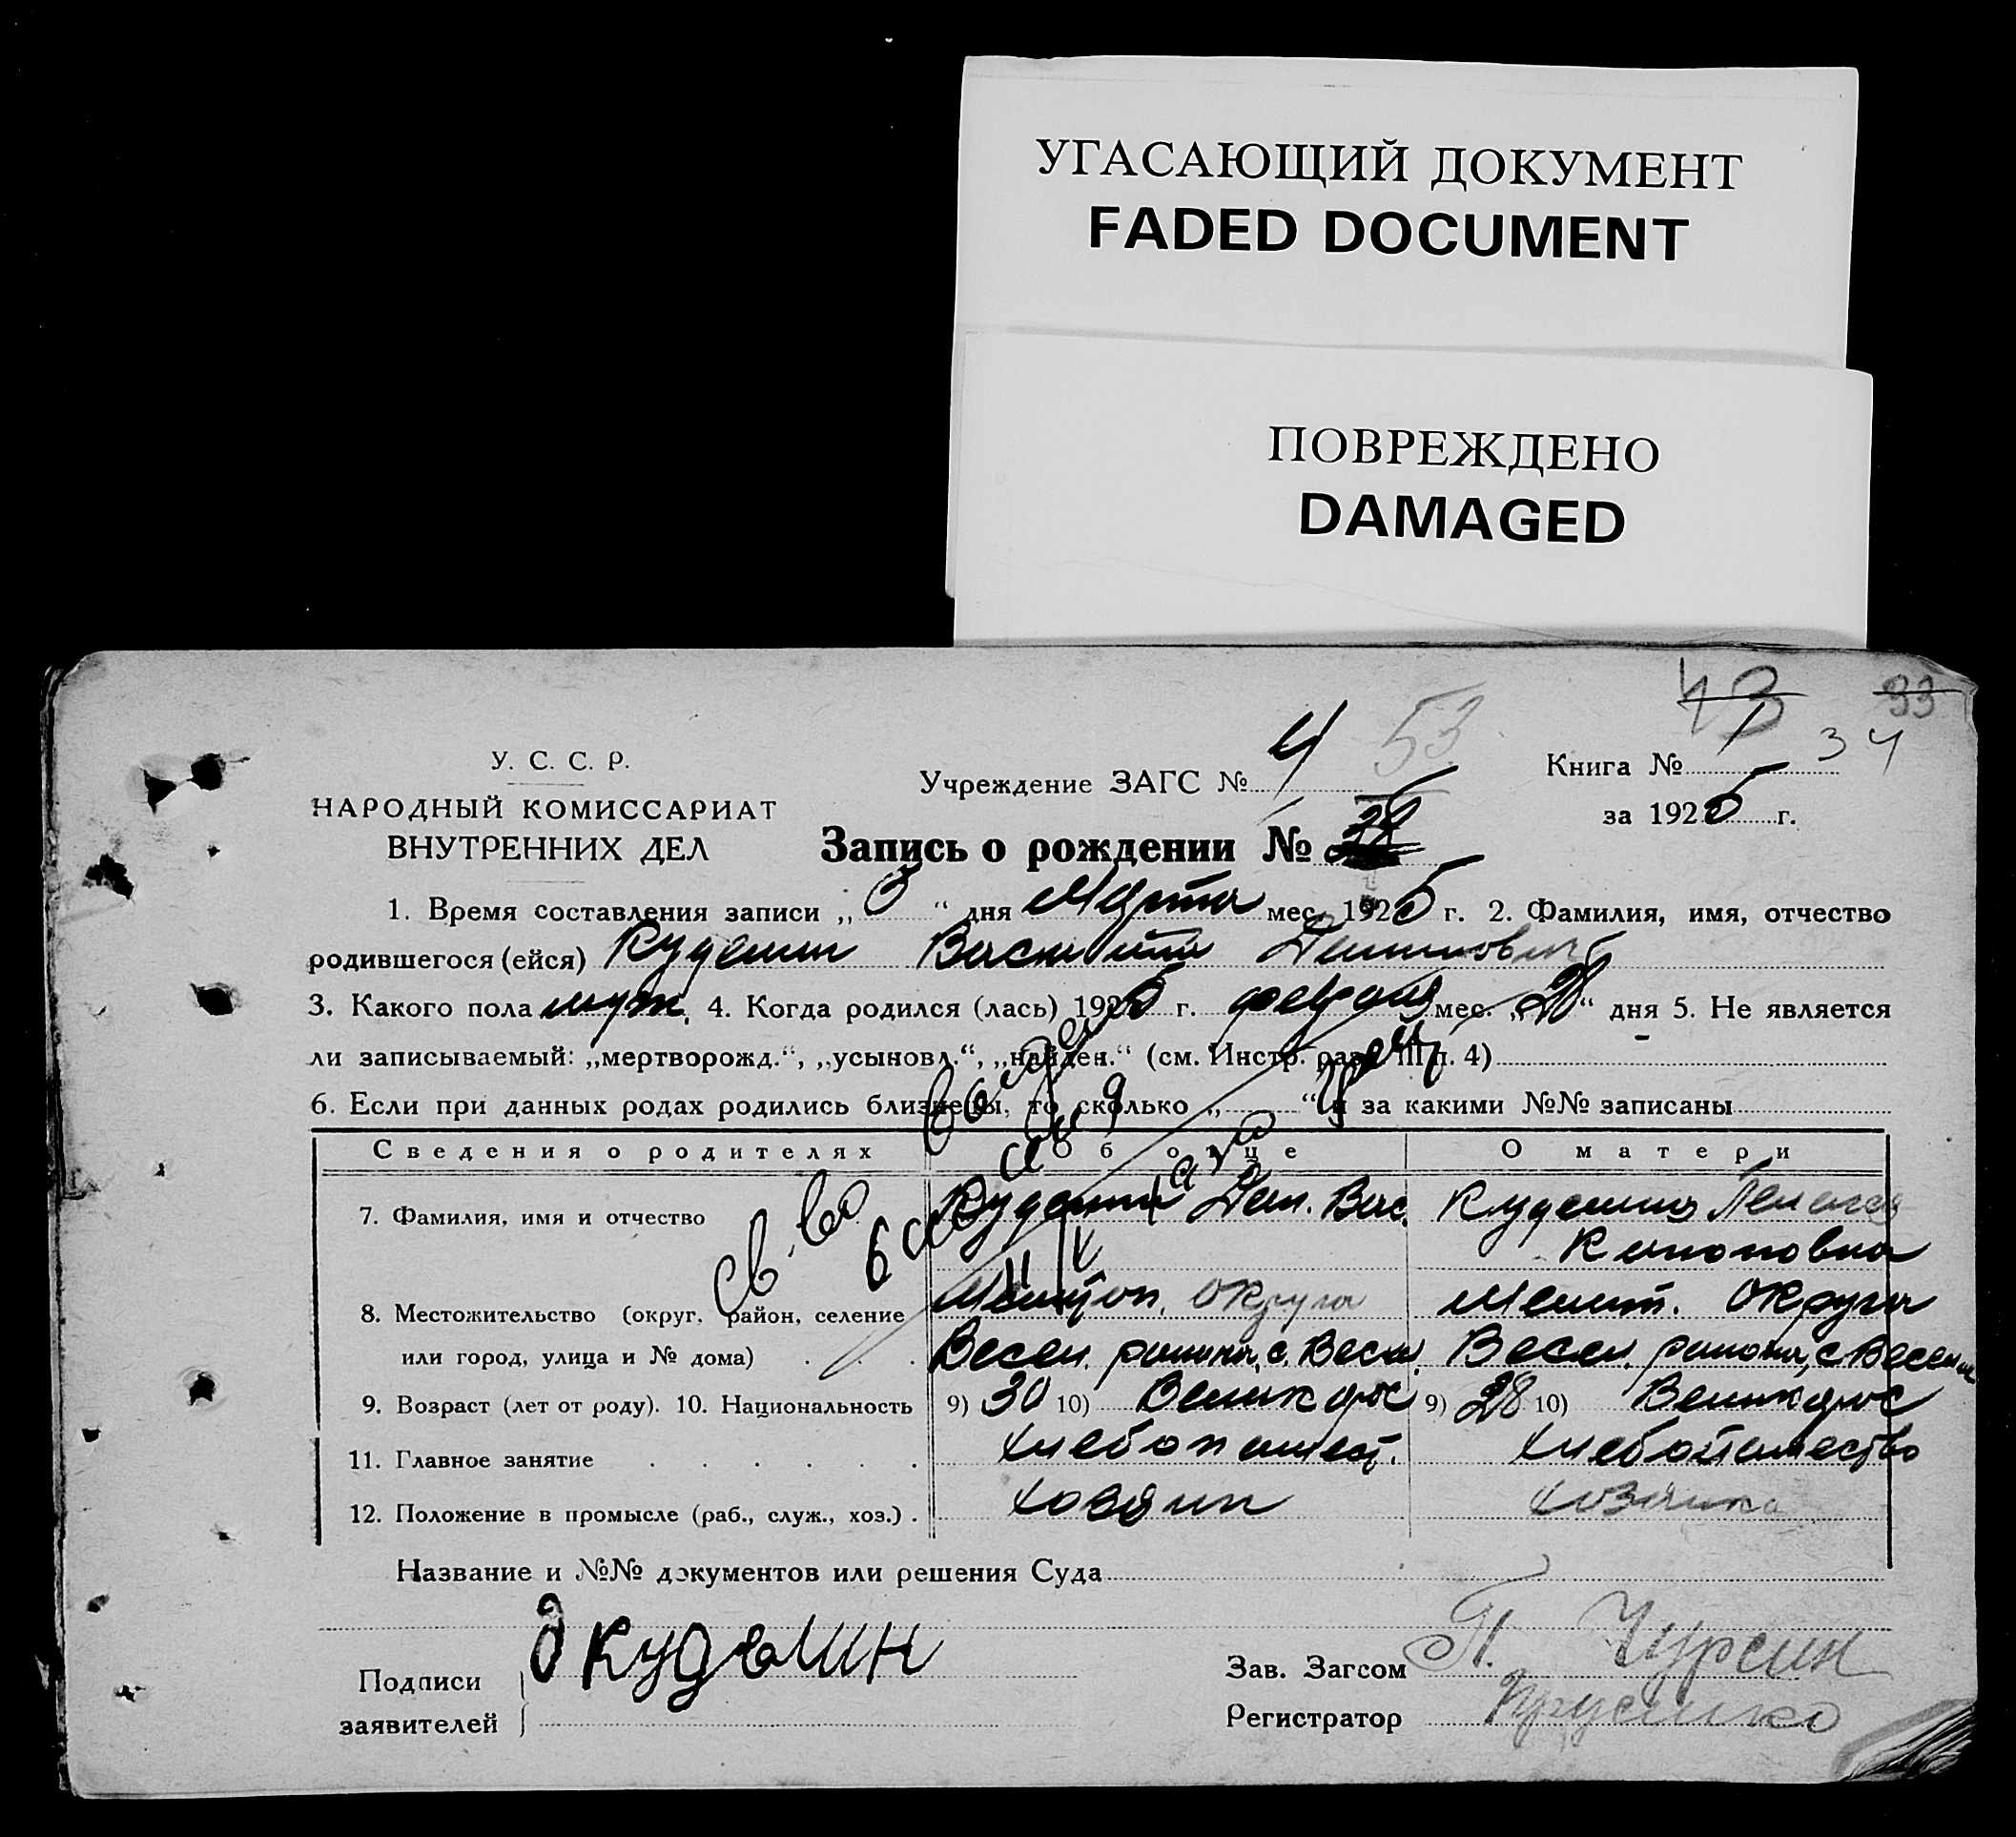 УГАСАЮЩИЙ ДОКУМЕНТ
FADED DOCUMENT
ПОВРЕЖДЕНО
DAMAGED
43 33
У. С. С. Р.
Учреждение ЗАГС № 4 53
Книга № 1 34
НАРОДНЫЙ КОМИССАРИАТ
ВНУТРЕННИХ ДЕЛ
за 1925 г.
Запись о рождении №
1. Время составления записи „ 3 “ дня Марта мес. 1925 г. 2. Фамилия, имя, отчество
родившегося (ейся) Кудемин Василий
3. Какого пола муж. 4. Когда родился (лась) 1925 г. февраля мес. „28“ дня 5. Не является
ли записываемый: „мертворожд.“, „усыновл.“, „найден.“ (см. Инстр. разд. III п. 4) -
6. Если при данных родах родились близнецы, то сколько „ “ и за какими №№ записаны
Сведения о родителях Об отце О матери
7. Фамилия, имя и отчество Кудемин Дем. Вас. Кудемина
Кононовна
8. Местожительство (округ, район, селение Мелитоп. Округа Мелит. Округа
или город, улица и № дома) Весел. района, с. Весел. Весел. района, с
9. Возраст (лет от роду). 10. Национальность 9) 30 10) Великорос 9) 28 10) Великорос
11. Главное занятие Хлебопашест. Хлебопашество
12. Положение в промысле (раб., служ., хоз.) Хозяин Хозяйка
Св-во
Название и №№ документов или решения Суда
Подписи
заявителей
Д Кудемин
Зав. Загсом П. Чурсин
Регистратор